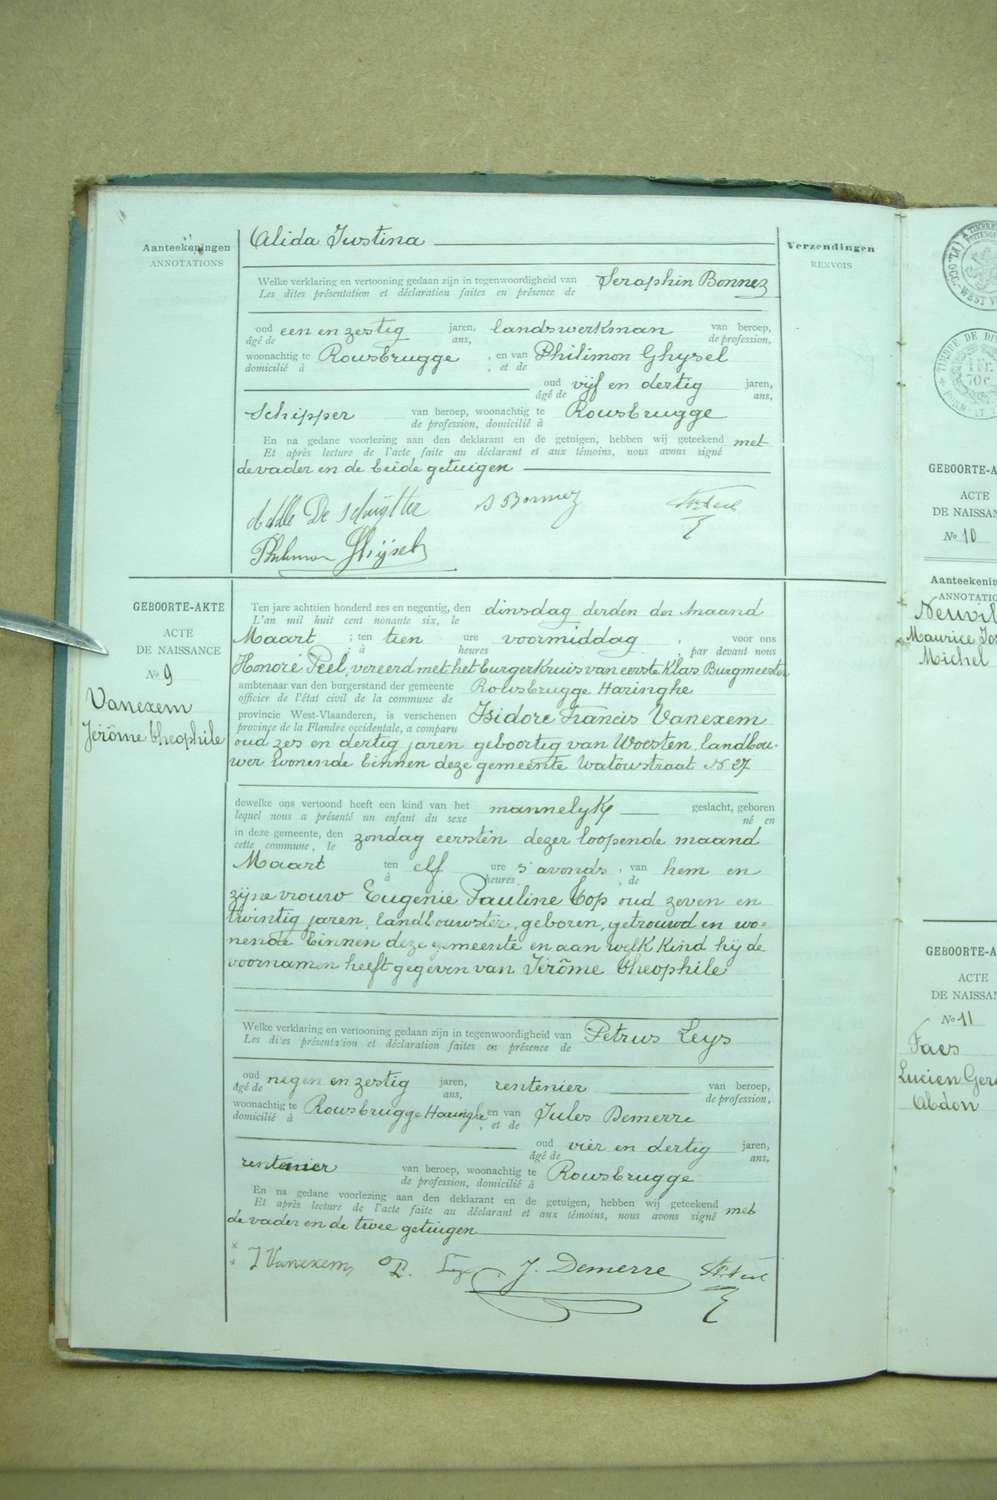 Aanteekeningen
ANNOTATIONS
Alida Justina
Verzendingen
RENVOIS
Welke verklaring en vertooning gedaan zijn in tegenwoordigheid van Seraphin Bonnez
Les dites présentation et déclaration faites en présence de
oud een en zestig jaren, landswerkman van beroep,
âgé de ans, de profession,
woonachtig te Rousbrugge, en van Philimon Ghysel
domicilié à , et de
oud vijf en dertig jaren,
âgé de ans,
Schipper van beroep, woonachtig te Rousbrugge
de profession, domicilié à
En na gedane voorlezing aan den deklarant en de getuigen, hebben wij geteekend met
Et après lecture de l'acte faite au déclarant et aux témoins, nous avons signé
de vader en de beide getuigen
S Bonnez
Philimon Ghijsel
GEBOORTE-AKTE
ACTE
DE NAISSANCE
No 9
Vanexem
Jérôme theophile
Ten jare achttien honderd zes en negentig, den dinsdag derden der maand
L'an mil huit cent nonante six, le
Maart ; ten tien ure voormiddag, voor ons
; à heures , par devant nous
Honoré Peel, vereerd met het burgerkruis van eerste klas Burgmeester
ambtenaar van den burgerstand der gemeente Rousbrugge Haringhe
officier de l'état civil de la commune de
provincie West-Vlaanderen, is verschenen Isidore Francis Vanexem
province de la Flandre occidentale, a comparu
oud zes en dertig jaren geboortig van Woesten, landbou-
wer wonende binnen deze gemeente Watoustraat Nr 27
dewelke ons vertoond heeft een kind van het mannelyk geslacht, geboren
lequel nous a présenté un enfant du sexe né en
in deze gemeente, den zondag eersten dezer loopende maand
cette commune, le
Maart ten elf ure s'avonds, van hem en
à heures , de
zijne vrouw Eugenie Pauline Cop oud zeven en
twintig jaren, landbouwster, geboren, getrouwd en wo-
nende binnen deze gemeente en aan welk kind hij de
voornamen heeft gegeven van Jérôme theophile
Welke verklaring en vertooning gedaan zijn in tegenwoordigheid van Petrus Leys
Les dites présentation et déclaration faites en présence de
oud negen en zestig jaren, rentenier van beroep,
âgé de ans, de profession,
woonachtig te Rousbrugge Haringhe en van Jules Demerre
domicilié à , et de
oud vier en dertig jaren,
âgé de ans,
rentenier van beroep, woonachtig te Rousbrugge
de profession, domicilié à
En na gedane voorlezing aan den deklarant en de getuigen, hebben wij geteekend met
Et après lecture de l'acte faite au déclarant et aux témoins, nous avons signé
de vader en de twee getuigen
J Vanexem P. J. Demerre
GEBOORTE-A
ACTE
DE NAISSAN
No 10
Aanteekenin
ANNOTATIO
Maurice Jos
Michel
GEBOORTE-A
ACTE
DE NAISSAN
No 11
Faes
Lucien Gera
Abdon